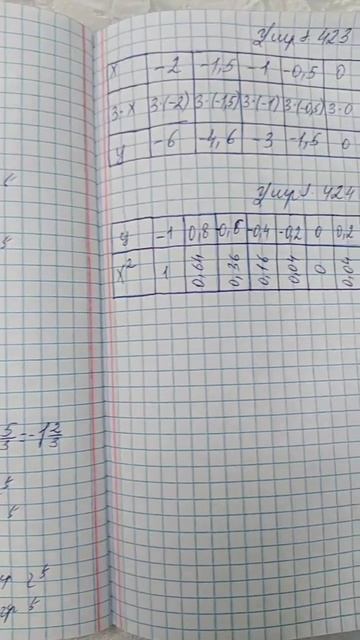 Упр. 423
x -2 -1,5 -1 -0,5 0
3·x 3·(-2) 3·(-1,5) 3·(-1) 3·(-0,5) 3·0
y -6 -4,6 -3 -1,5 0
Упр. 424
y -1 0,8 -0,6 -0,4 -0,2 0 0,2
x² 1 0,64 0,36 0,16 0,04 0 0,04
5/3 = -1 2/3